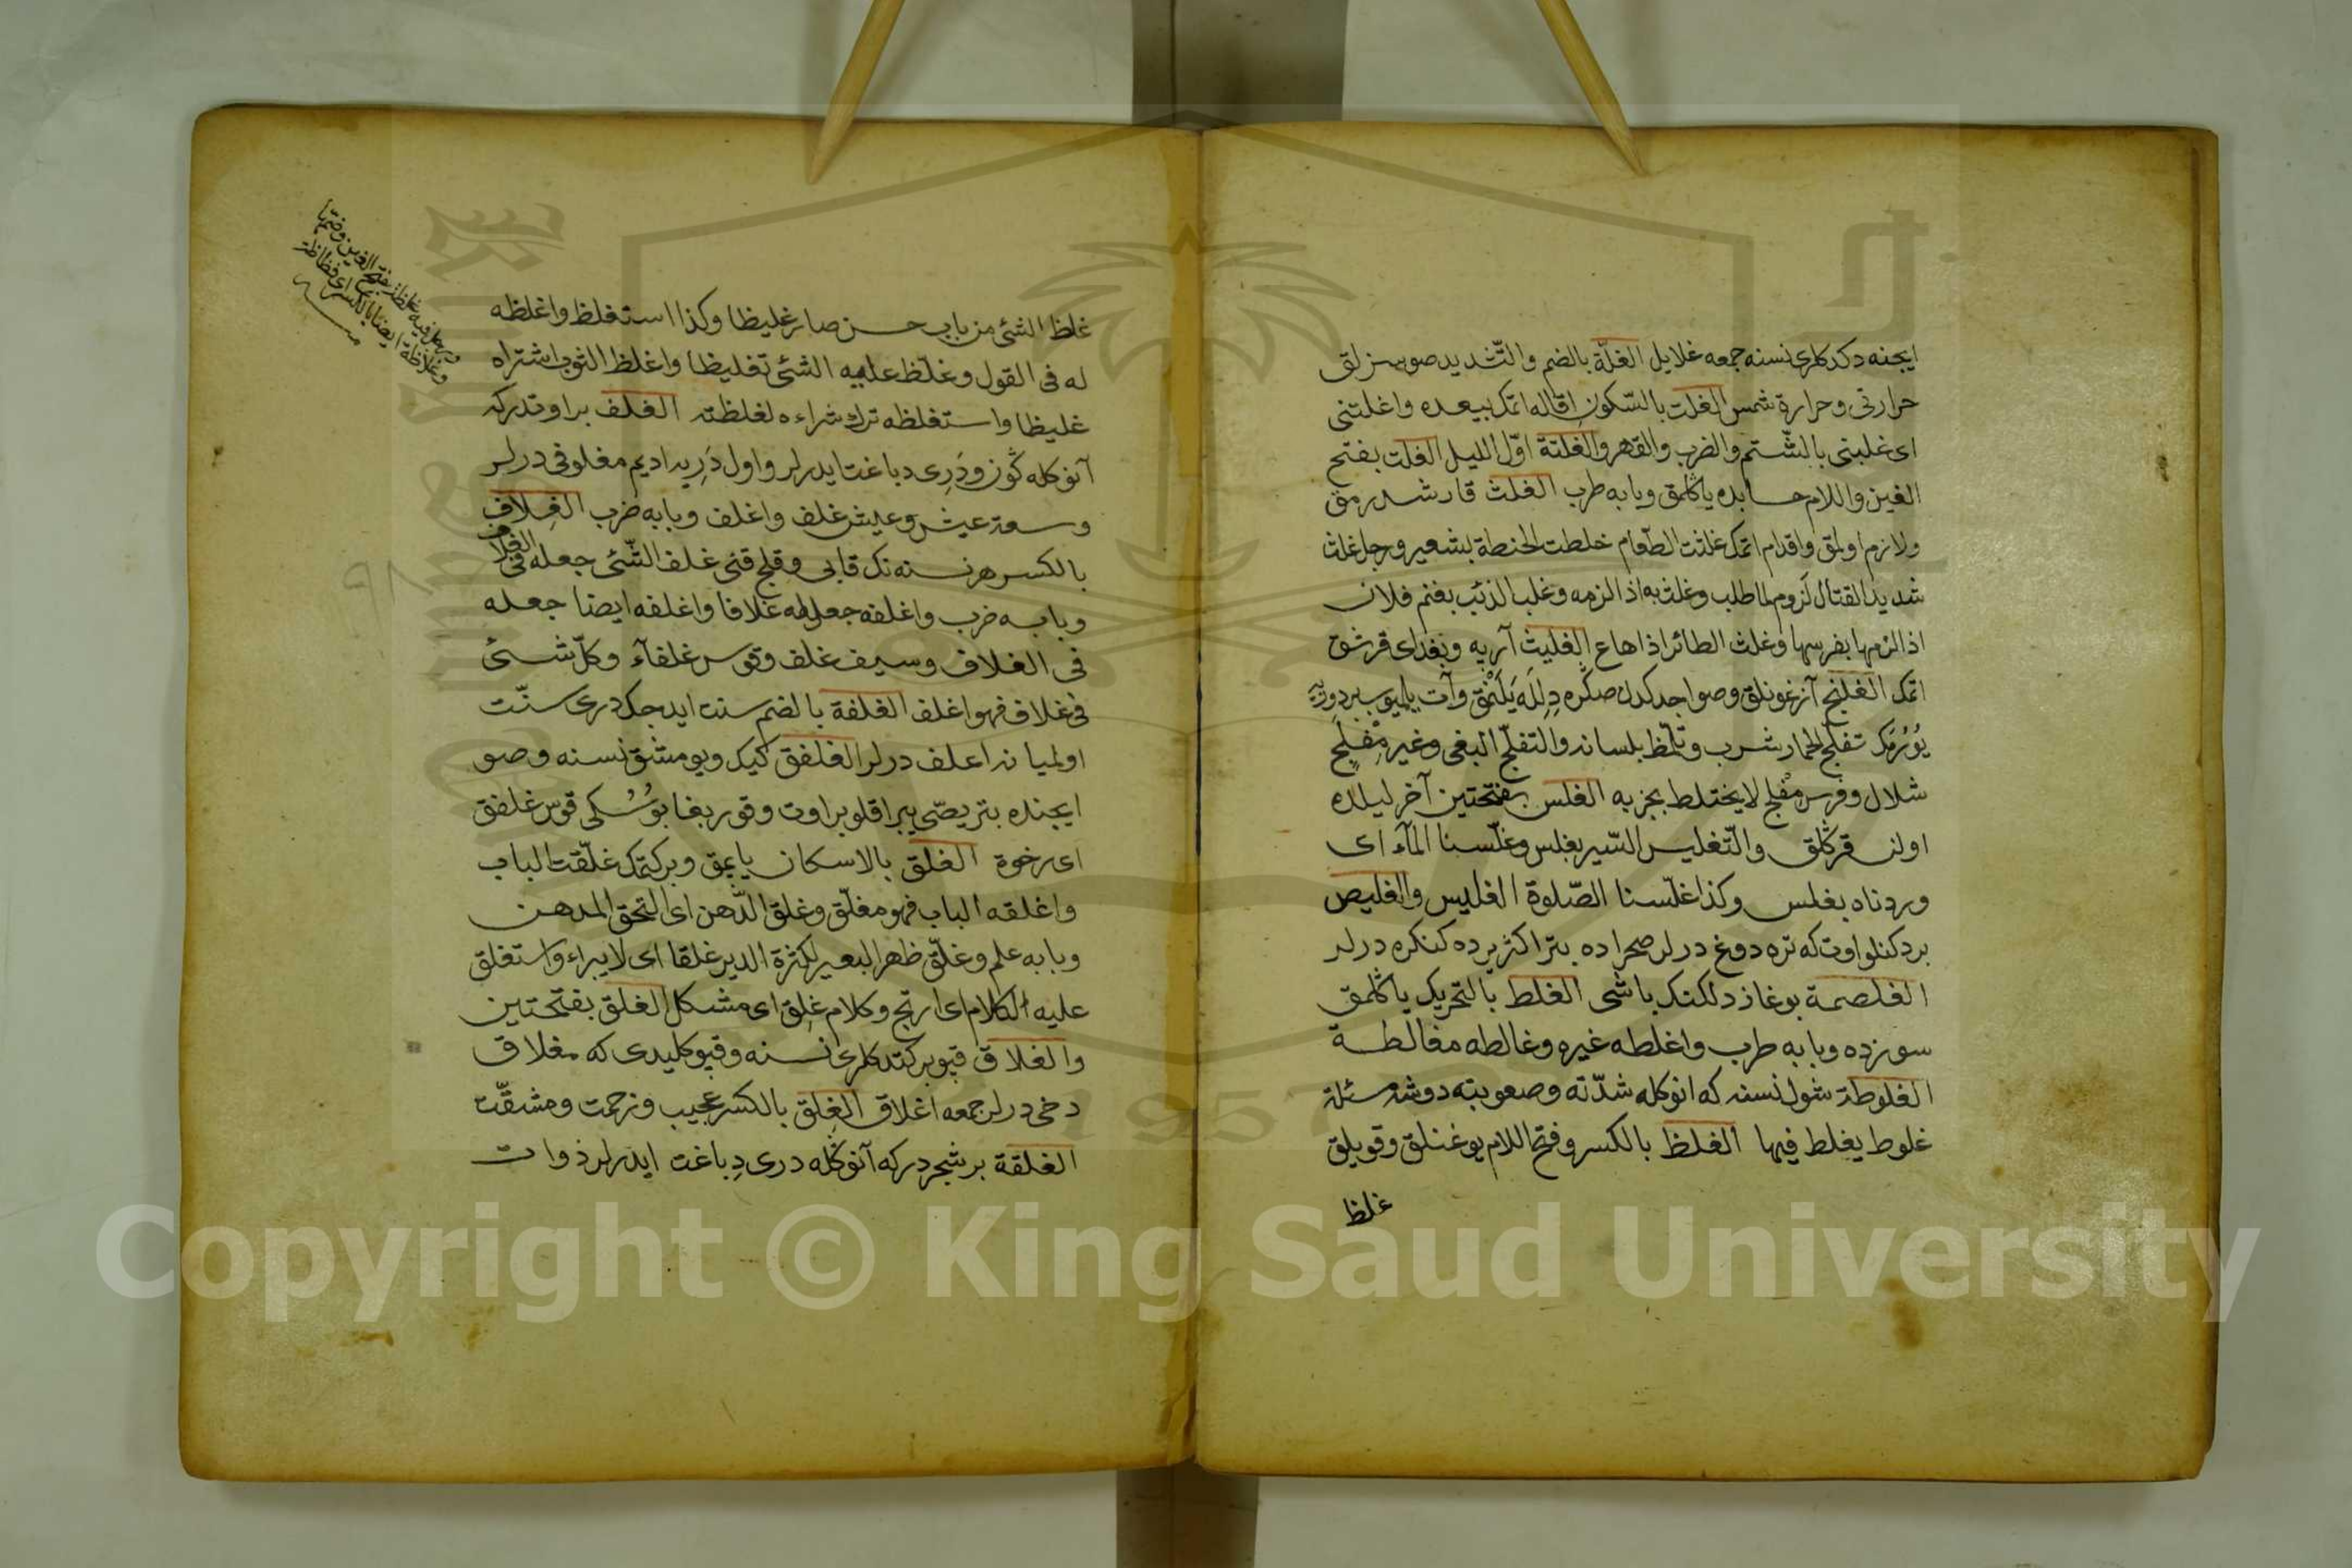 ايجنه دكدكلرى نسنه جمعه غلايل الغلّة بالضم والتّشديد صوسزلق
حرارتى وحرارة شمس الغلت بالسّكون اقاله اتمك بيعده واغلتنى
اى غلبنى بالشّتم والضرب والقهر والغلتة اوّل الليل الغلت بفتح
الغين واللام حسابده ياڭلمق وبابه طرب الغلث قارشدرمق
ولازم اولمق واقدام اتمك غلثت الطّعام خلطت الحنطة بشعير ورجل غلث
شديد القتال لزوم لما طلب وغلث به اذا لزمه وغلب الذئب بغنم فلان
اذا لزمها بفرسها وغلث الطائر اذا هاع الغليث آربه وبغداى قرشق
اتمك الغلج آزغونلق وصواجدكدن صڭره دلله يلنمق وآت يلميوب بر دورلى
يورمك تغلّج الحمار شرب وتلمّظ بلسانه والتغلّج البغى وعير مغلج
شلال وفرس مغلج لا يختلط بجريه الغلس بفتحتين آخر ليلده
اولن قرڭلق والتّغليس السّير بغلس وغلّسنا المآء اى
وردناه بغلس وكذا غلّسنا الصّلوة الغليس والغليص
بر دكنلو اوت كه تره دوغ درلر صحراده بتر اكثريرده كنكره درلر
الغلصمة بوغاز دلكنك باشى الغلط بالتحريك ياڭلمق
سوزده وبابه طرب واغلطه غيره وغالطه مغالطة
الغلوطة شول نسنه كه انوكله شدّته وصعوبته دوشه مسئلة
غلوط يغلط فيها الغلظ بالكسر وفتح اللام يوغنلق وقويلق
غلظ
غلظ الشئ من باب حسن صار غليظا وكذا استغلظ واغلظه
له فى القول وغلّظ عليه الشئ تغليظا واغلظ الثوب اشتراه
غليظا واستغلظه ترك شراءه لغلظته الغلف بر اوتدركه
آنوكله كون ودرى دباغت ايدرلر واول دريه اديم مغلوفى درلر
وسعة عيش وعيش غلف واغلف وبابه ضرب الغلاف
بالكسر هر نسنه نك قابى وقلج قنى غلف الشّئ جعله فى الغلاف
وبابه ضرب واغلفه جعل له غلافا واغلفه ايضا جعله
فى الغلاف وسيف اغلف وقوس غلفآء وكلّ شئ
فى غلاف فهو اغلف الغلفة بالضم سنت ايدجك درى سنّت
اولميانه اغلف درلر الغلفق كيك ويومشق نسنه وصو
ايجنده بتر يصّى يپراقلو بر اوت وقوربغا يوسنى قوس غلفق
اى رخوة الغلق بالاسكان ياپمق وبركتمك غلّقت الباب
واغلقه الباب فهو مغلّق وغلق الرّهن اى استحق المرتهن
وبابه علم وغلق ظهر البعير لكثرة الدبر غلقا اى لا يبراء واستغلق
عليه الكلام اى ارتج وكلام غلق اى مشكل الغلق بفتحتين
والغلاق قپو بركتدكلرى نسنه وقپو كليدى كه مغلاق
دخى درلر جمعه اغلاق الغلق بالكسر عجيب وزحمت ومشقّت
الغلقة بر شجردركه آنوڭله درى دباغت ايدرلر ذوات
ورجل فيه غلظة بفتح الغين وضمّها
وغلاظة ايضا بالكسر اى فظاظة
Copyright © King Saud University
1957